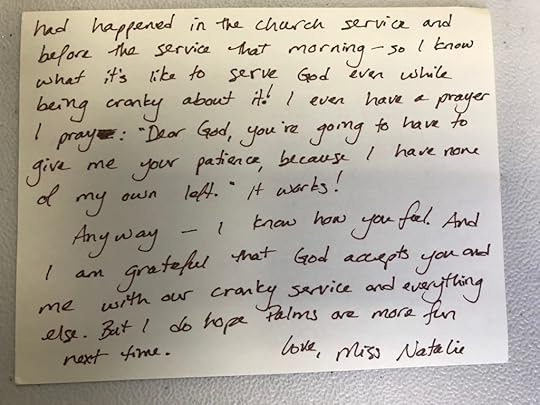 had happened in the church service and
before the service that morning – so I know
what it's like to serve God even while
being cranky about it! I even have a prayer
I pray: "Dear God, you're going to have to
give me your patience, because I have none
of my own left." It works!
Anyway – I know how you feel. And
I am grateful that God accepts you and
me with our cranky service and everything
else. But I do hope Palms are more fun
next time. Love, Miss Natalie